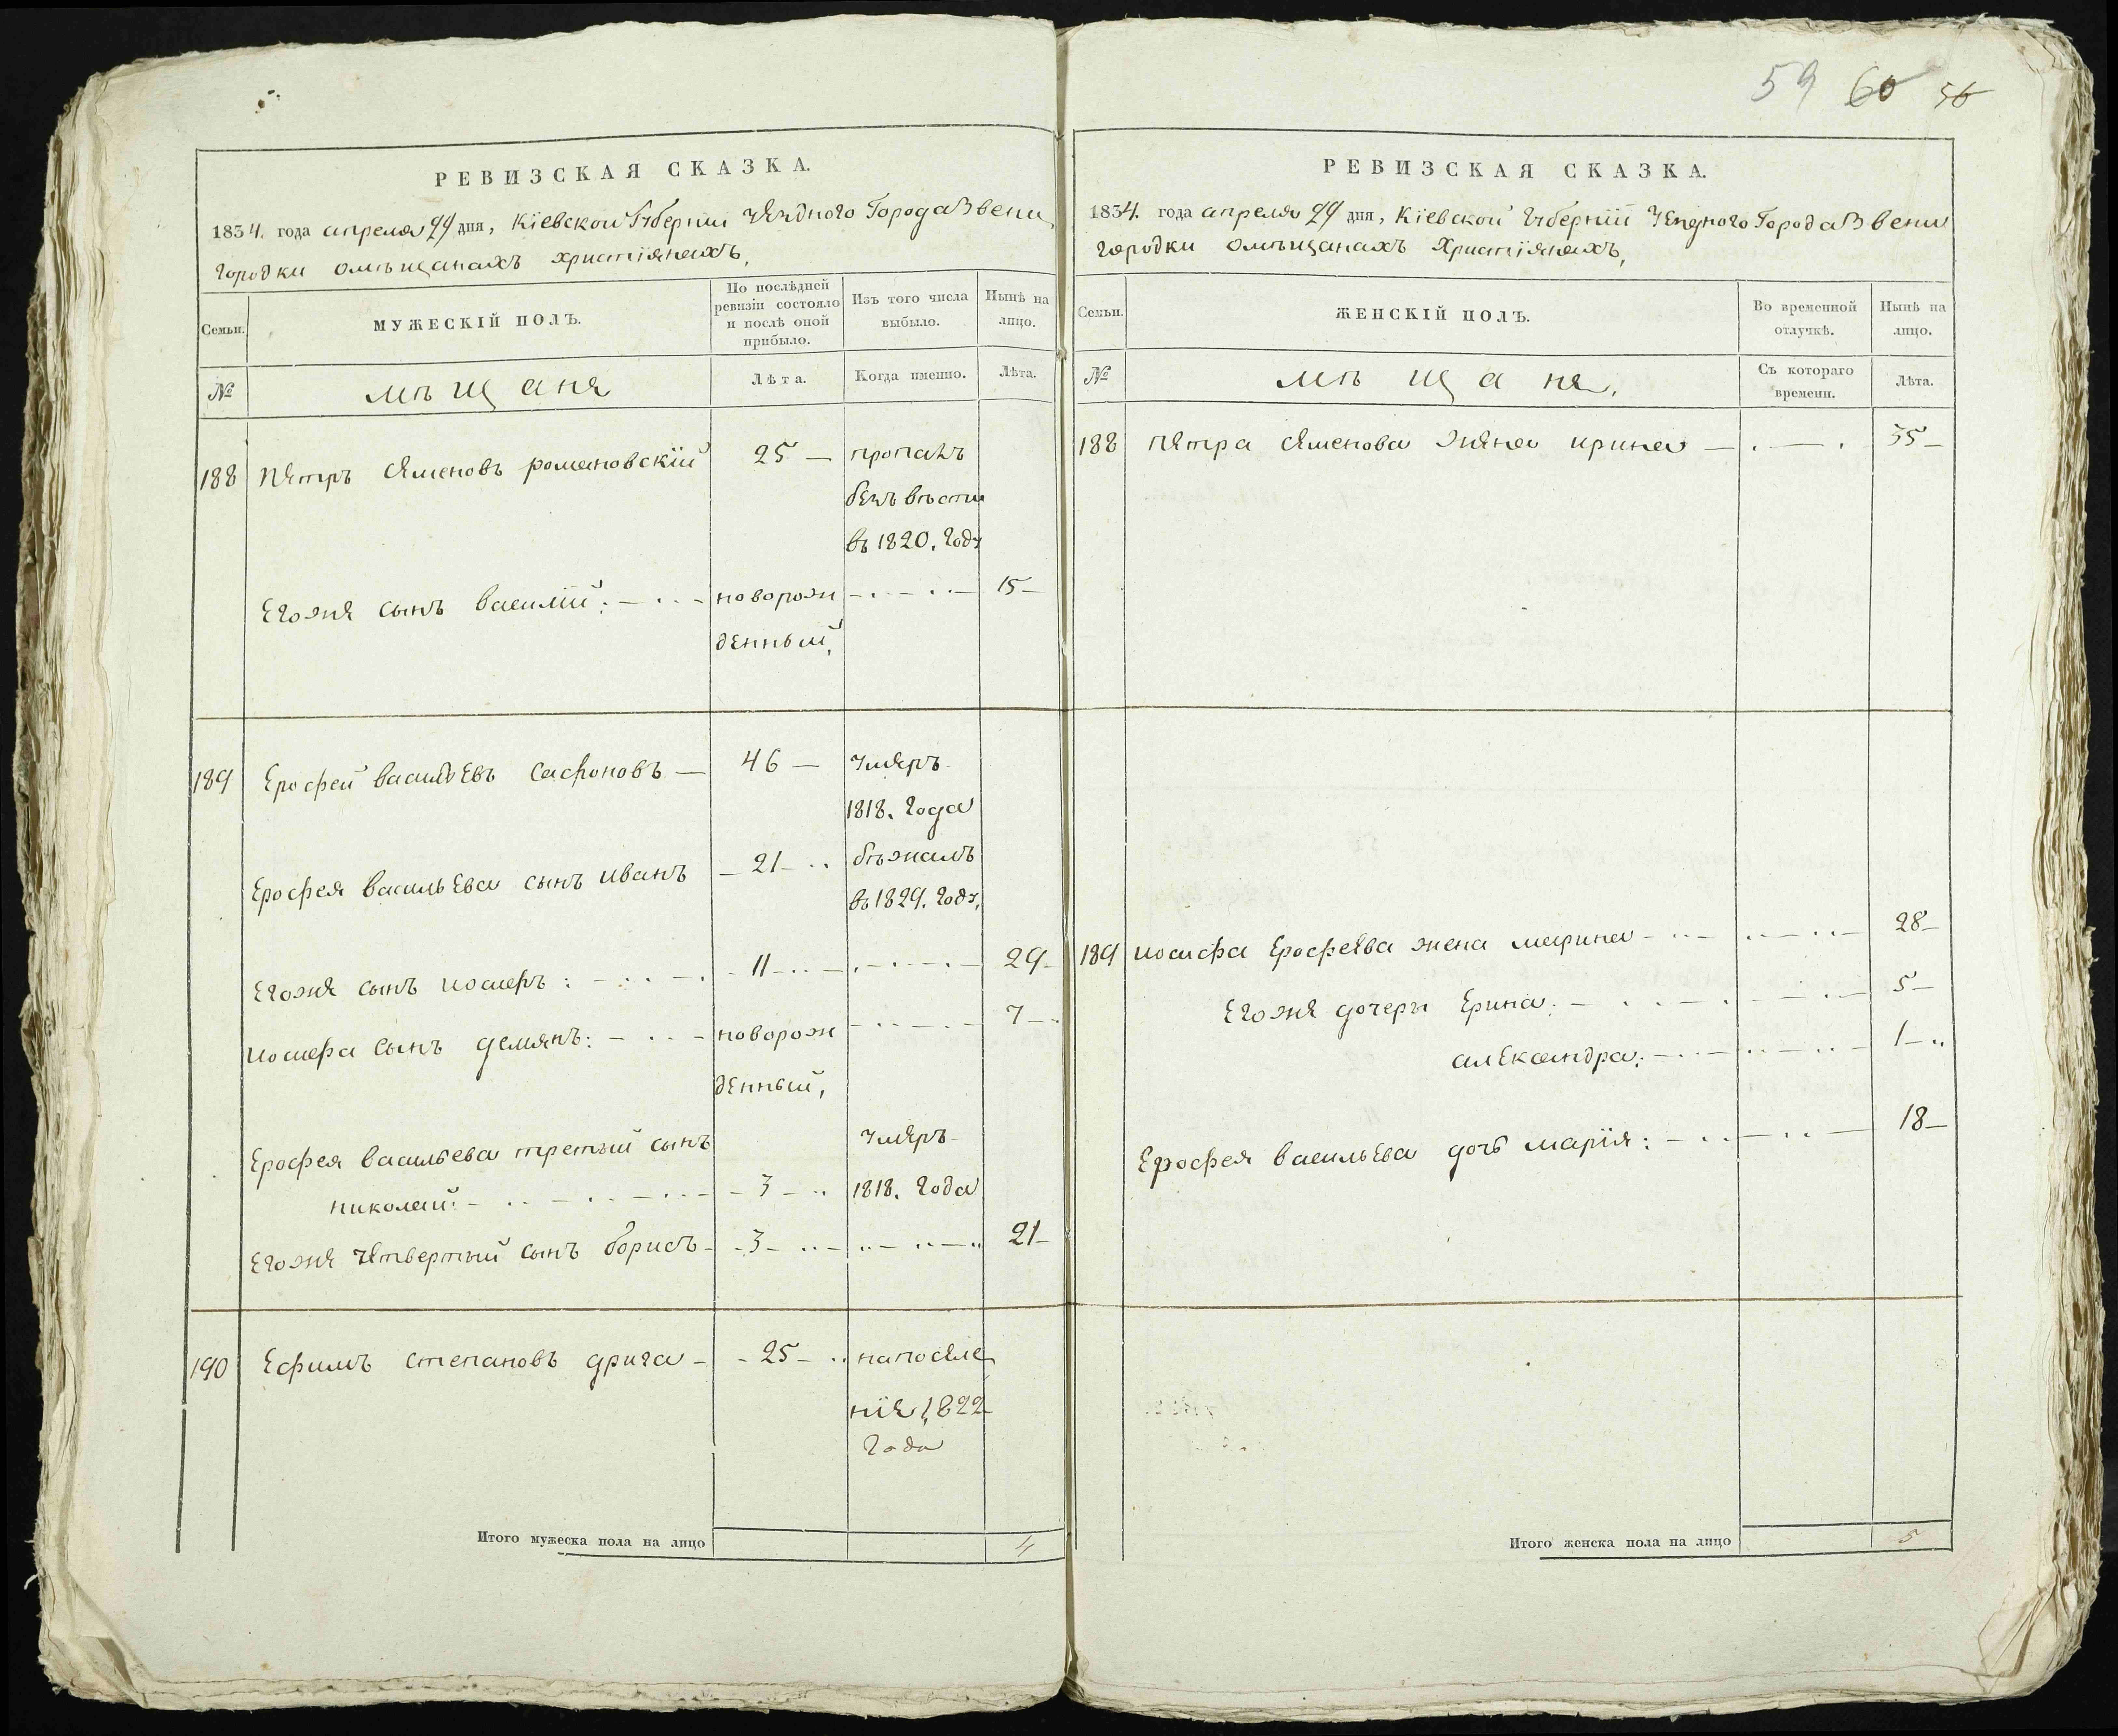 59 60 56
РЕВИЗСКАЯ СКАЗКА.
1834. года апреля 29 дня, Кїевской Губернїи уезднаго Города Звени
городки омѣщанахъ христїянахъ,
Семьи.
МУЖЕСКІЙ ПОЛЪ.
По послѣдней
ревизіи состояло
и послѣ оной
прибыло.
Изъ того числа
выбыло.
Нынѣ на
лицо.
№
мѣщаня
Лѣта.
Когда именно.
Лѣта.
188 Петръ Семеновъ романовскїй 25 — пропалъ
безъ вѣсти
въ 1820. году
Егоже сынъ василїй: новорож 15
денный,
189 Ерофей васильевъ сафроновъ — 46 — умеръ
1818. года
Ерофея васильева сынъ иванъ 21 бѣжалъ
въ 1829. году,
Егоже сынъ иосифъ: 11 29
иосифа сынъ демянъ: новорож 7
денный,
Ерофея васильева третый сынъ умеръ
николай: 3 1818. года
Егоже четвертый сынъ борисъ 3 21
190 Ефимъ степановъ дрига 25 напоселе
нїе 1822
года
Итого мужеска пола на лицо 4
РЕВИЗСКАЯ СКАЗКА.
1834. года апреля 29 дня, Кїевской Губернїи уезднаго Города Звени
городки омѣщанахъ Христїянахъ,
Семьи.
ЖЕНСКІЙ ПОЛЪ.
Во временной
отлучкѣ.
Нынѣ на
лицо.
№
мѣщаня,
Съ котораго
времени.
Лѣта.
188 петра семенова жена ирина — 35
189 иосифа Ерофеева жена марина 28
Егоже дочеры Ерина: 5
александра: 1
Ерофея васильева дочь марїя: 18
Итого женска пола на лицо 5